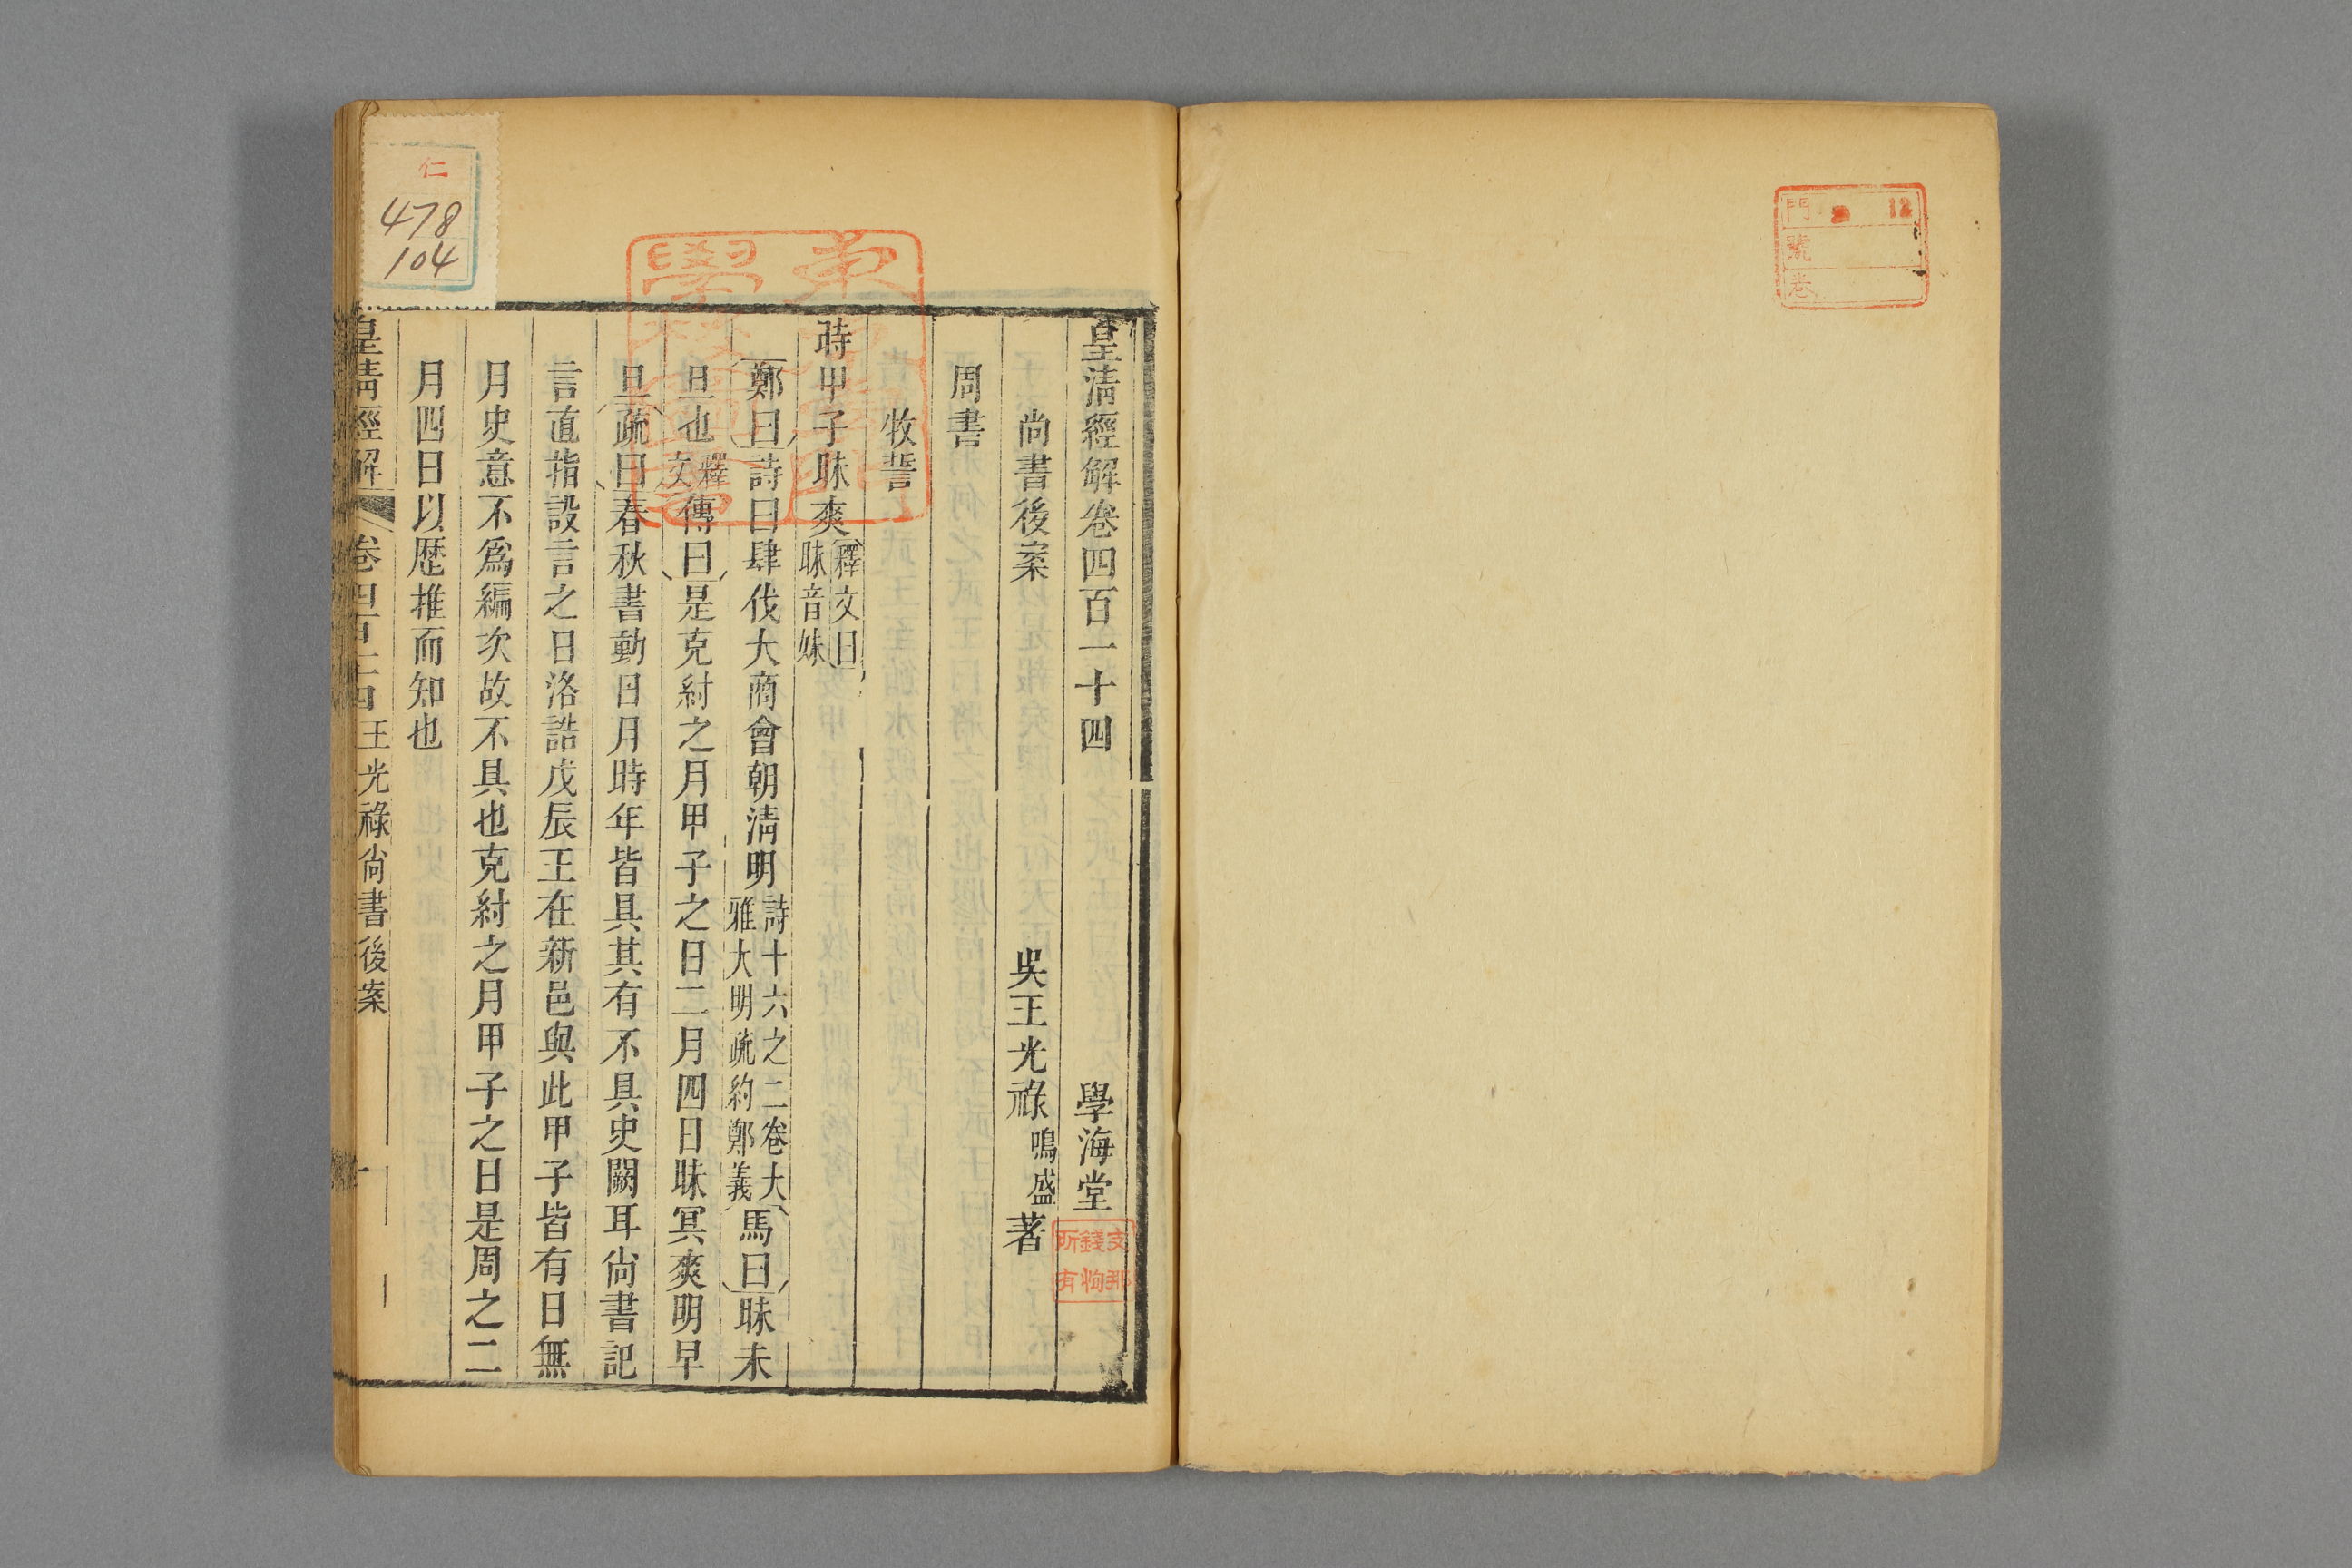 門 12
號
卷
皇清經解卷四百一十四 學海堂
尚書後案 吳王光祿鳴盛著
周書
牧誓
時甲子昧爽釋文曰昧音妹
鄭曰詩曰肆伐大商會朝清明詩十六之二卷大雅大明疏約鄭義馬曰昧未
旦也釋文傳曰是克紂之月甲子之日二月四日昧冥爽明早
旦疏曰春秋書動日月時年皆具其有不具史闕耳尙書記
言直指設言之日洛誥戊辰王在新邑與此甲子皆有日無
月史意不爲編次故不具也克紂之月甲子之日是周之二
月四日以歷推而知也
皇清經解 卷四百十四 王光祿尙書後案 一
支那
錢恂
所有
仁
478
104